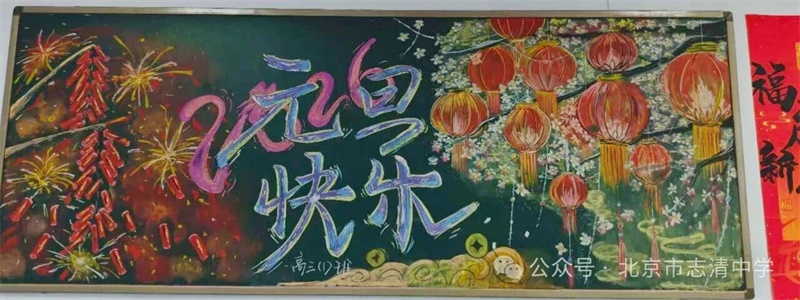 2026
元旦
快乐
高三(1)班
福
新
公众号·北京市志清中学